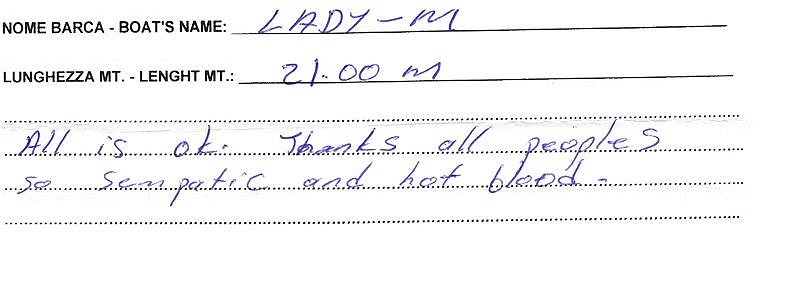 NOME BARCA - BOAT'S NAME: LADY-M
LUNGHEZZA MT. - LENGHT MT.: 21.00 m
All is ok. Thanks all peoples
so sempatic and hot blood-